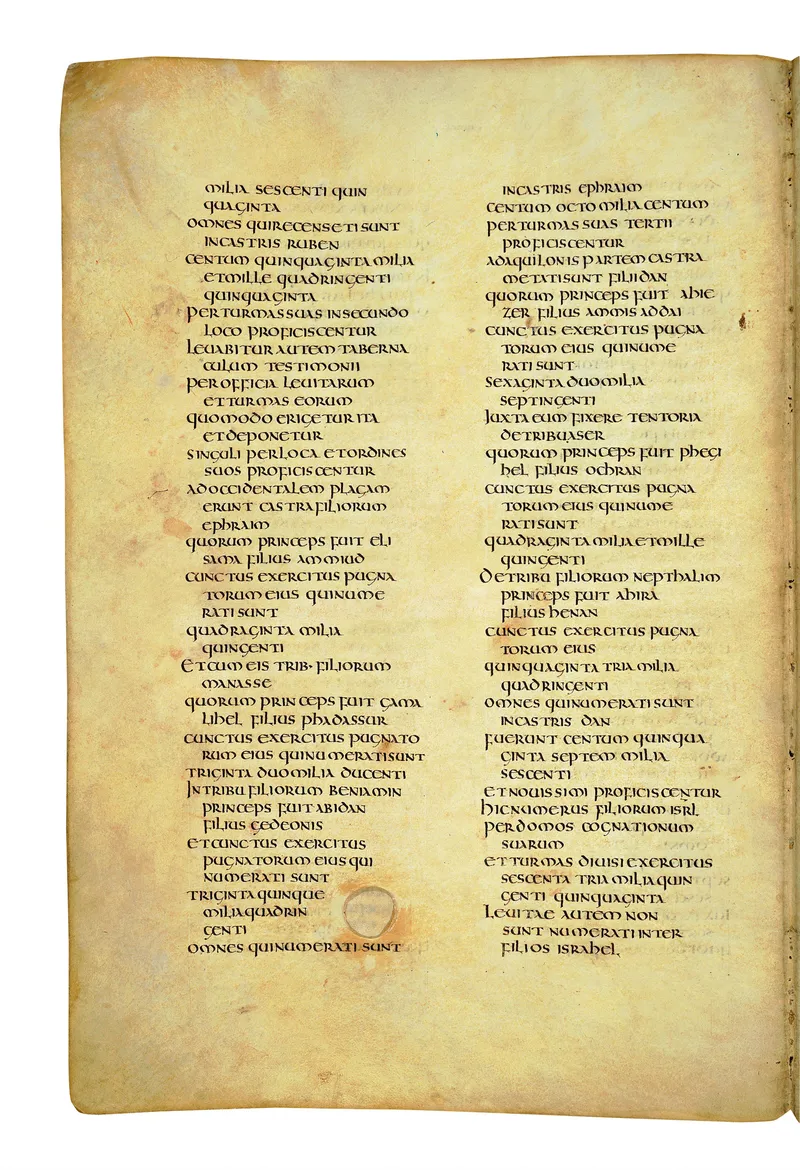 milia sescenti quin
quaginta
omnes qui recenseti sunt
in castris ruben
centum quinquaginta milia
et mille quadringenti
quinquaginta
per turmas suas in secundo
loco proficiscentur
levabitur autem taberna
culum testimonii
per officia levitarum
et turmas eorum
quomodo erigetur ita
et deponetur
singuli per loca et ordines
suos proficiscentur
ad occidentalem plagam
erunt castra filiorum
ephraim
quorum princeps fuit eli
sama filius ammiud
cunctus exercitus pugna
torum eius qui nume
rati sunt
quadraginta milia
quingenti
et cum eis trib· filiorum
manasse
quorum princeps fuit gama
lihel filius phadassur
cunctus exercitus pugnato
rum eius qui numerati sunt
triginta duo milia ducenti
In tribu filiorum beniamin
princeps fuit abidan
filius gedeonis
et cunctus exercitus
pugnatorum eius qui
numerati sunt
triginta quinque
milia quadrin
genti
omnes qui numerati sunt
in castris ephraim
centum octo milia centum
per turmas suas tertii
proficiscentur
ad aquilonis partem castra
metati sunt filii dan
quorum princeps fuit abie
zer filius ammisaddai
cunctus exercitus pugna
torum eius qui nume
rati sunt
sexaginta duo milia
septingenti
Iuxta eum fixere tentoria
de tribu aser
quorum princeps fuit phegi
hel filius ochran
cunctus exercitus pugna
torum eius qui nume
rati sunt
quadraginta milia et mille
quingenti
De tribu filiorum nepthalim
princeps fuit ahira
filius henan
cunctus exercitus pugna
torum eius
quinquaginta tria milia
quadringenti
omnes qui numerati sunt
in castris dan
fuerunt centum quinqua
ginta septem milia
sescenti
et novissimi proficiscentur
hic numerus filiorum isrl
per domos cognationum
suarum
et turmas divisi exercitus
sescenta tria milia quin
genti quinquaginta
Levitae autem non
sunt numerati inter
filios israhel